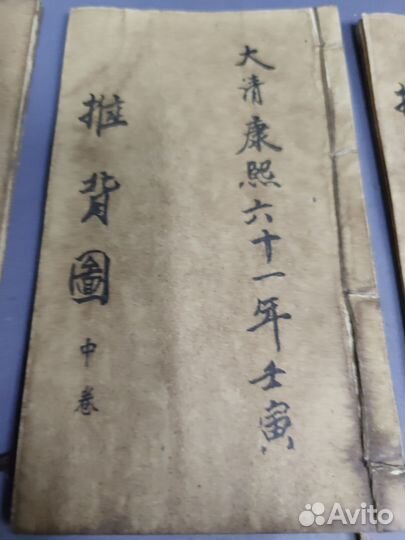 大清康熙六十一年壬寅
推背圖
中卷
Avito